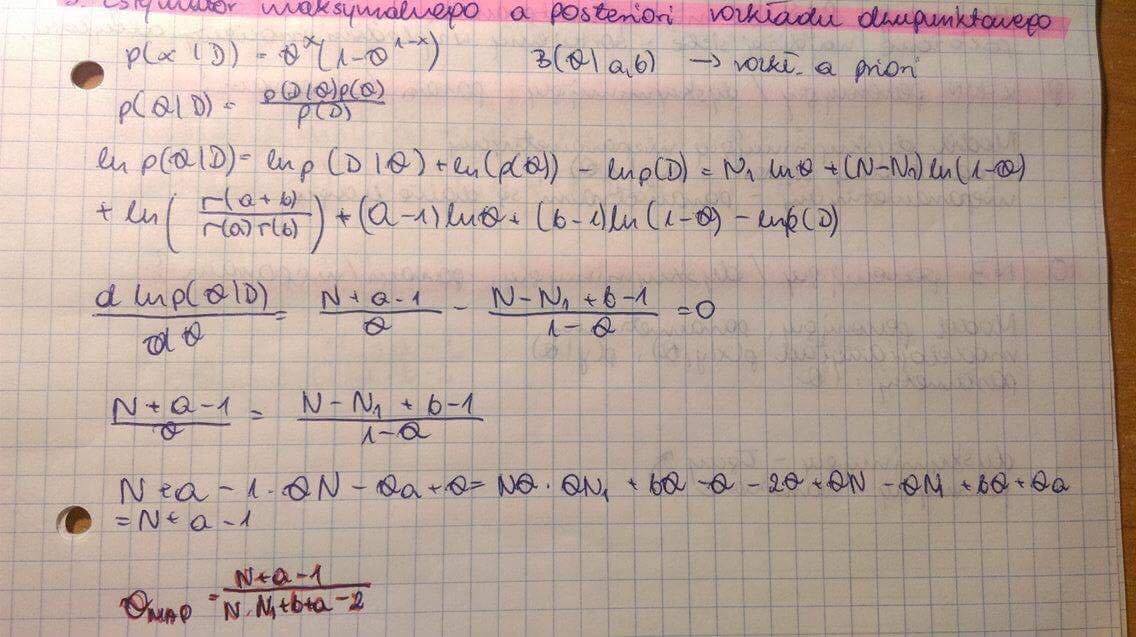 3. Estymator maksymalnego a posteriori rozkładu dwupunktowego
p(x|D) = θ^x(1-θ^{1-x}) B(θ|a,b) → rozkł. a priori
p(θ|D) = \frac{p(D|θ)p(θ)}{p(D)}
ln p(θ|D) = ln p(D|θ) + ln(p(θ)) - ln p(D) = N₁ lnθ + (N-N₁) ln(1-θ)
+ ln(\frac{Γ(a+b)}{Γ(a)Γ(b)}) + (a-1) lnθ + (b-1) ln(1-θ) - ln p(D)
\frac{d ln p(θ|D)}{dθ} = \frac{N+a-1}{θ} - \frac{N-N₁+b-1}{1-θ} = 0
\frac{N+a-1}{θ} = \frac{N-N₁+b-1}{1-θ}
N+a-1-θN-θa+θ = Nθ-θN₁+bθ-θ-2θ+θN-θN₁+bθ+θa
= N+a-1
θ_{MAP} = \frac{N+a-1}{N-N₁+b+a-2}